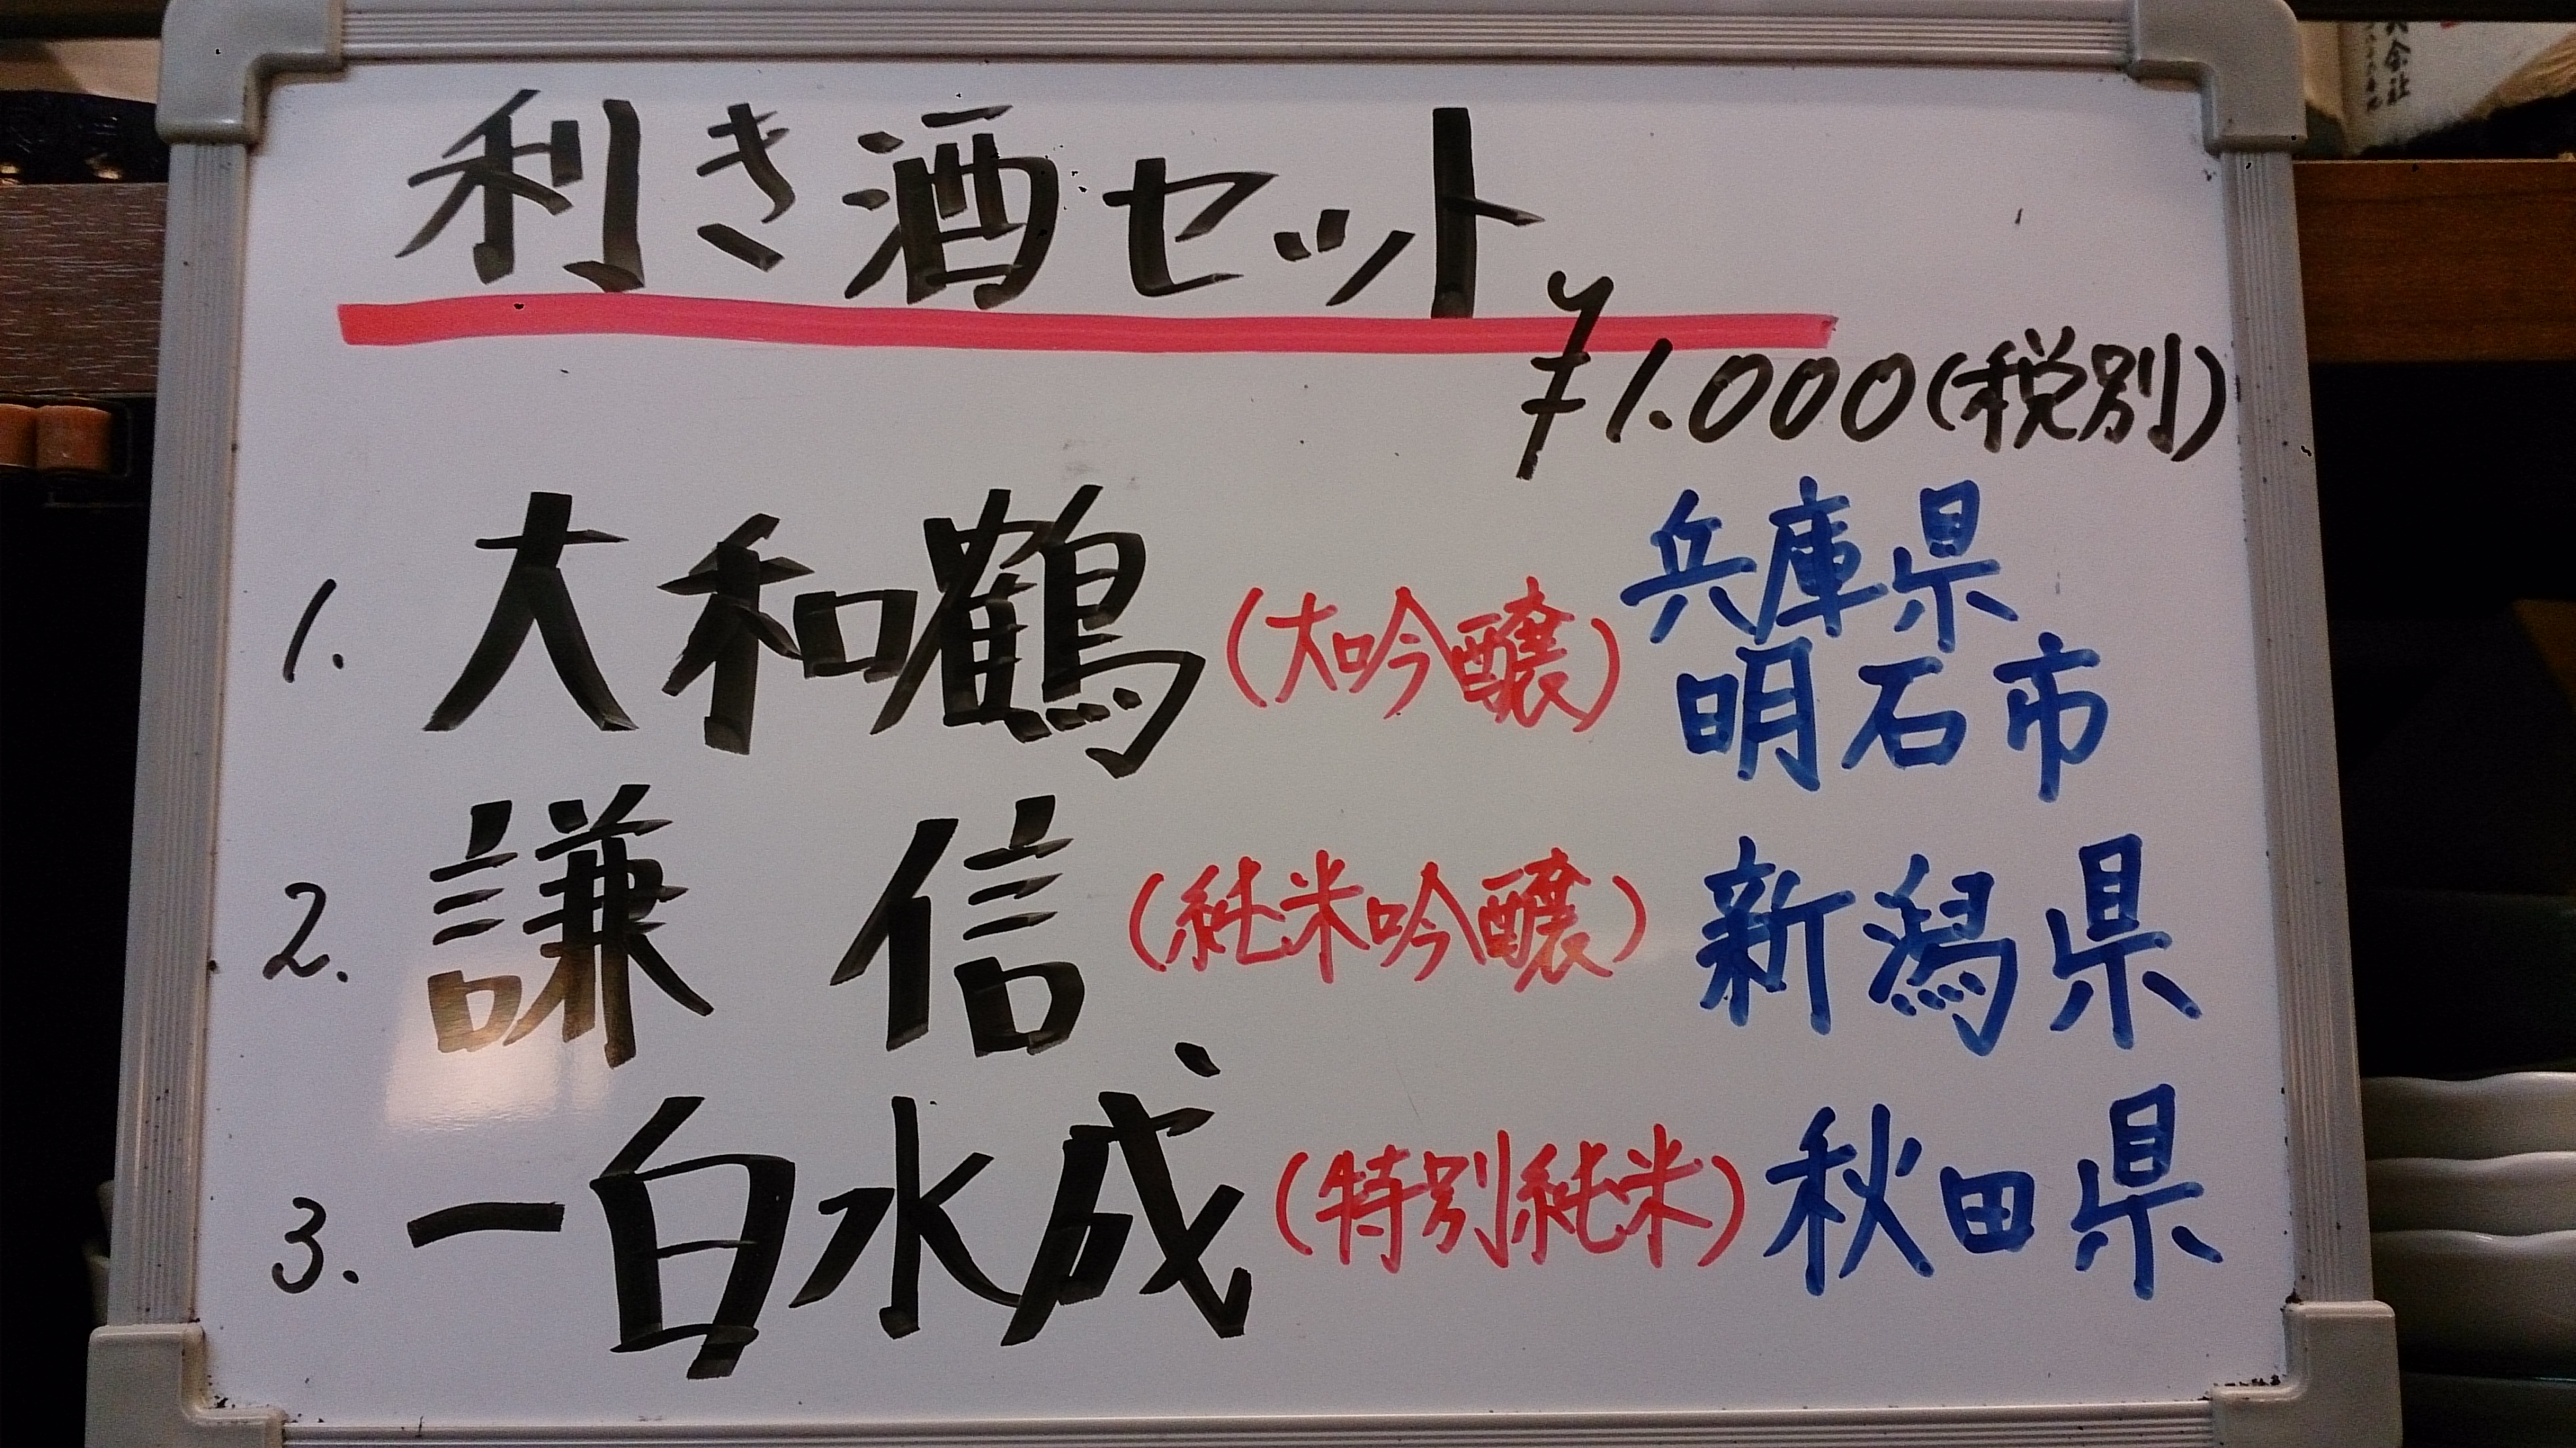 利き酒セット
¥1.000(税別)
1. 大和鶴 (大吟醸) 兵庫県
明石市
2. 謙信 (純米吟醸) 新潟県
3. 一白水成 (特別純米) 秋田県
会社